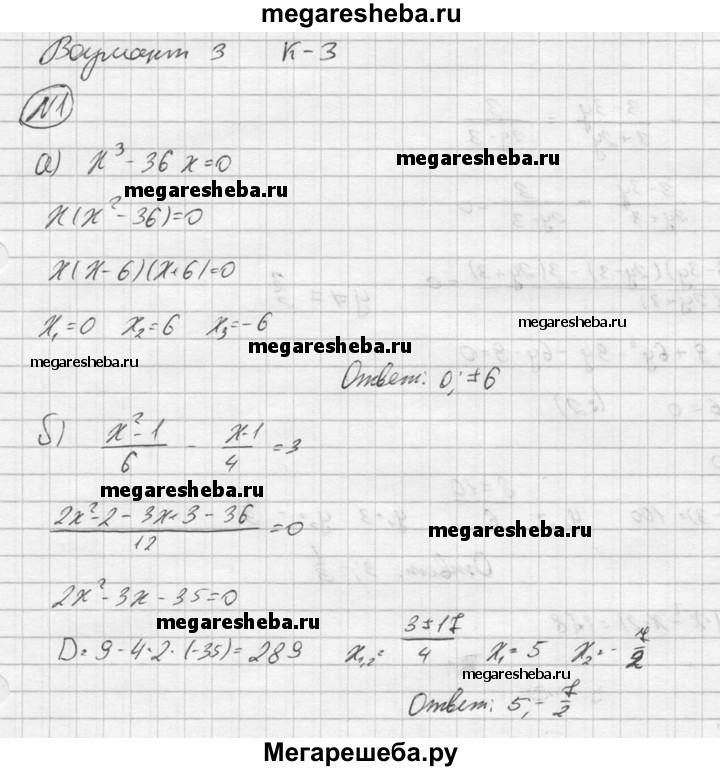 megaresheba.ru
Вариант 3 К-3
№1
а) x³ - 36 x = 0
megaresheba.ru
megaresheba.ru
x(x² - 36) = 0
x(x-6)(x+6) = 0
x₁ = 0 x₂ = 6 x₃ = -6
megaresheba.ru
megaresheba.ru
megaresheba.ru
Ответ: 0; ±6
б) (x² - 1)/6 - (x-1)/4 = 3
megaresheba.ru
(2x² - 2 - 3x + 3 - 36)/12 = 0
megaresheba.ru
2x² - 3x - 35 = 0
megaresheba.ru
D = 9 - 4·2·(-35) = 289 x₁,₂ = (3 ± 17)/4 x₁ = 5 x₂ = -7/2
megaresheba.ru
Ответ: 5; -7/2
Мегарешеба.ру